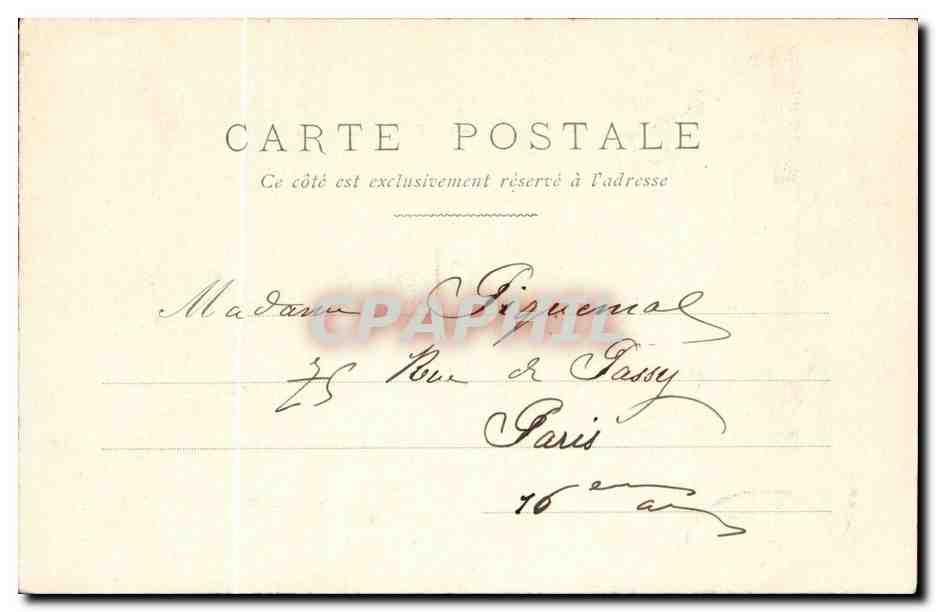 CARTE POSTALE
Ce côté est exclusivement réservé à l'adresse
Madame Piquemal
CPAPHIL
75 Rue de Passy
Paris
16em ar